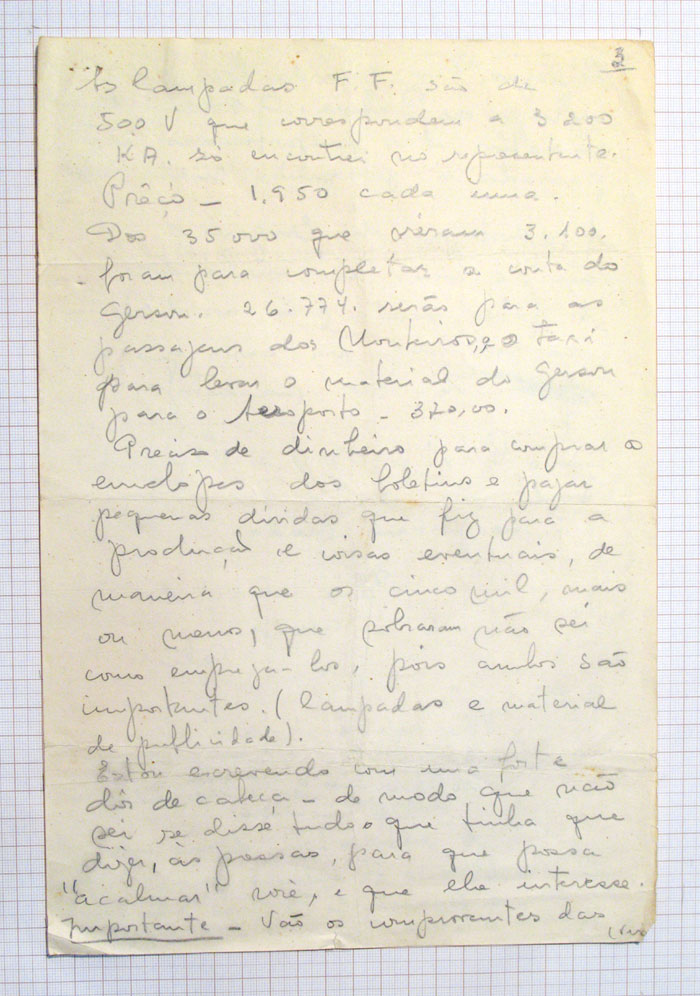 3
As lampadas F F. são de
500 V que correspondem a 3 200
KA. só encontrei no representante.
Prêço - 1.950 cada uma.
Dos 35000 que vieram 3.100.
foram para completar a conta do
Gerson. 26.774. serão para as
passajens dos Monteiros, e o taxi
para levar o material do Gerson
para o Aeroporto - 320,00.
Preciso de dinheiro para comprar o
envelopes dos boletins e pagar
pequenas dívidas que fiz para a
produção e coisas eventuais, de
maneira que os cinco mil, mais
ou menos, que sobraram não sei
como empregá-los, pois ambos são
importantes. (lampadas e material
de publicidade).
Estou escrevendo com uma forte
dôr de cabeça - de modo que não
sei se disse tudo o que tinha que
dizer, às pressas, para que possa
"acalmar" você, e que lhe interesse.
Importante - Vão os comprovantes das